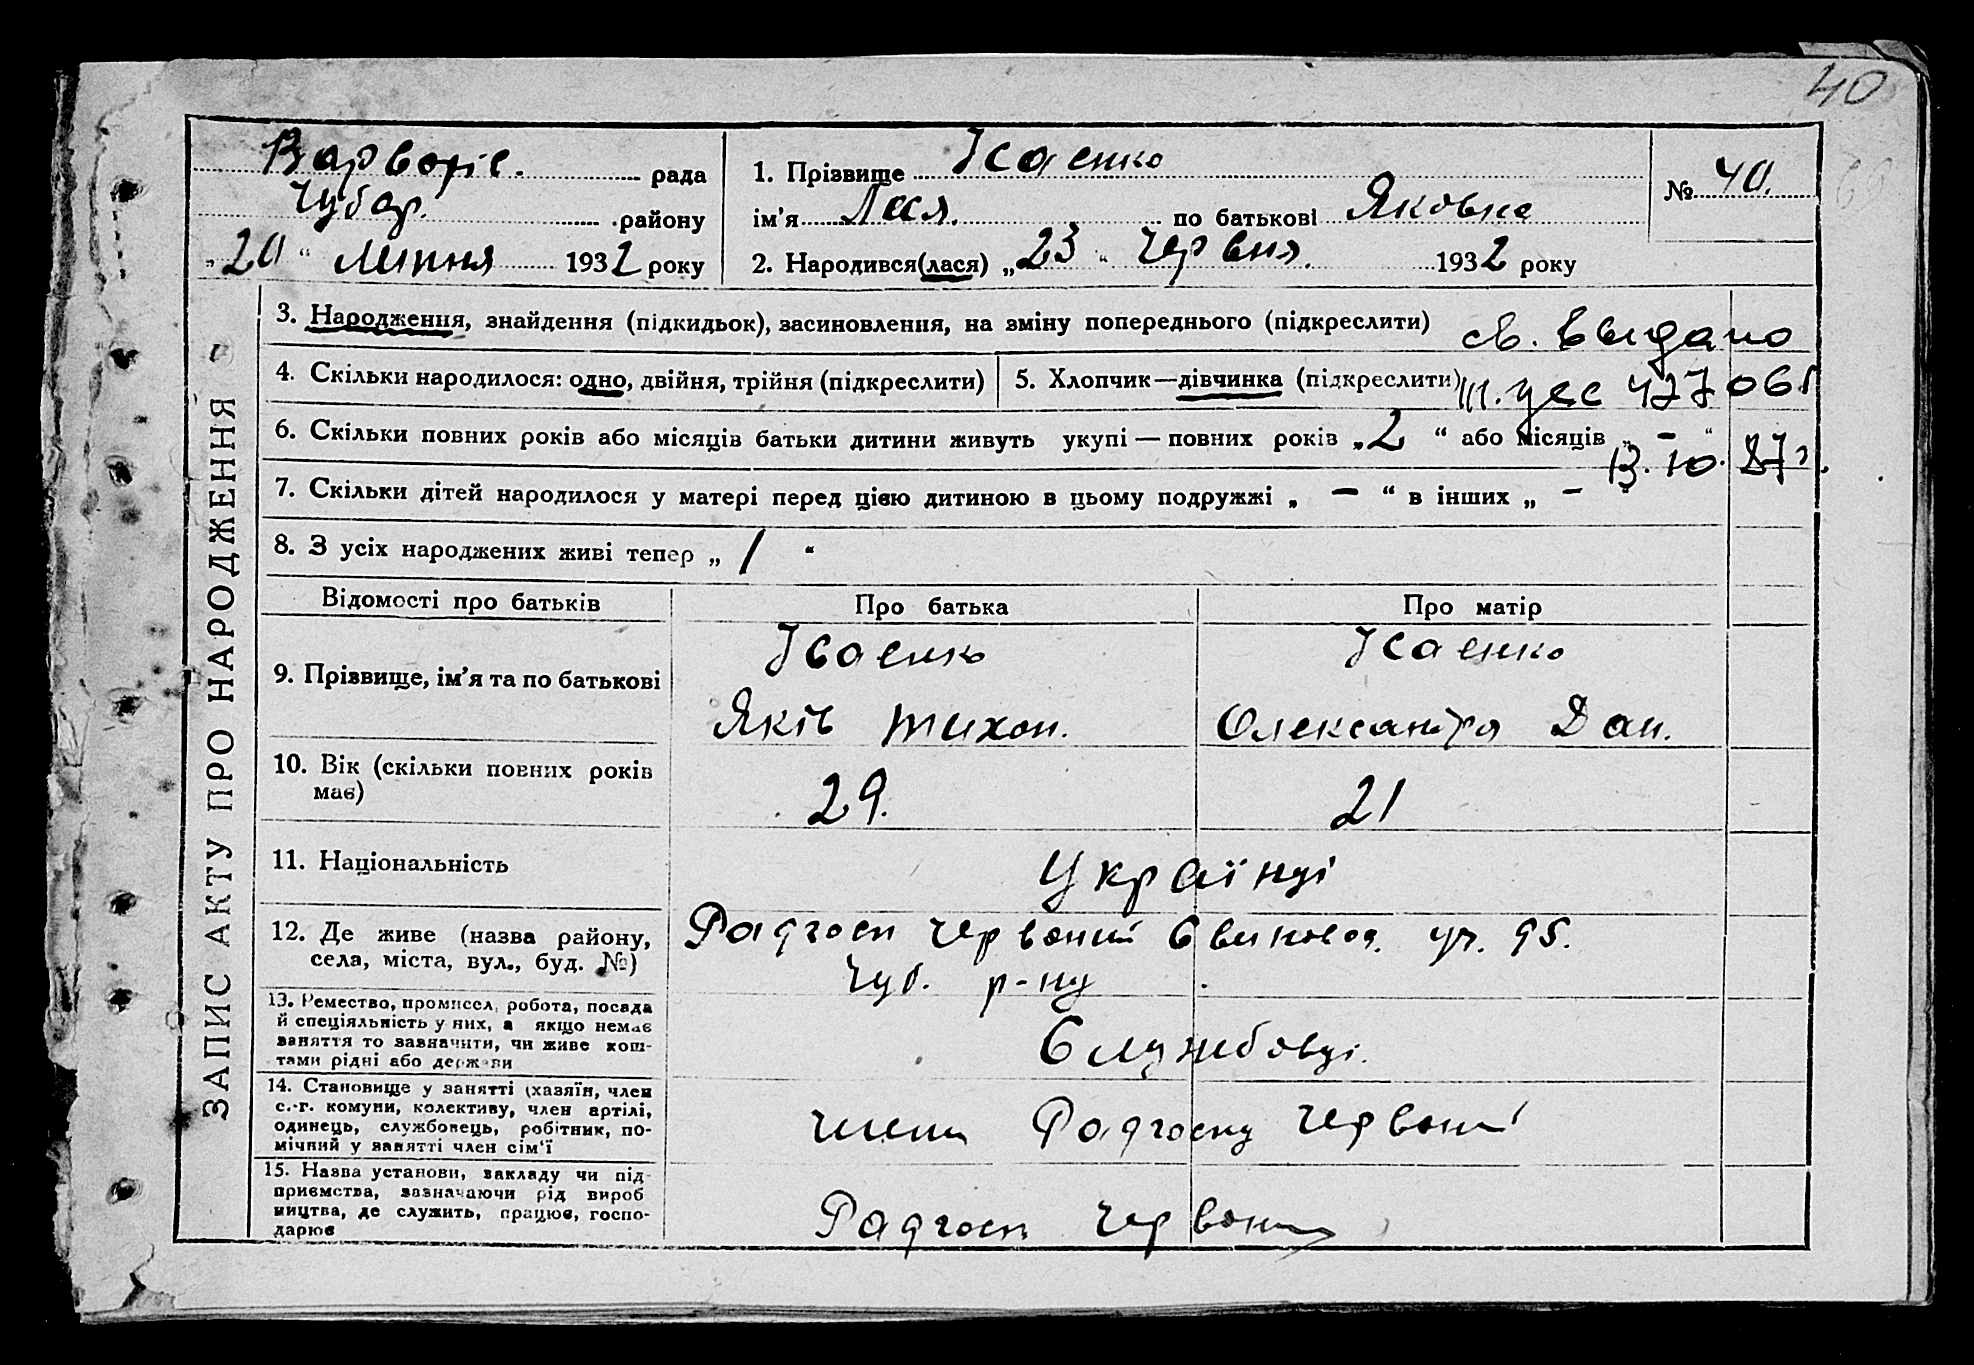 40
Варворів. рада
Чубар. району
„20“ Липня 1932 року
1. Прізвище Ісаєнко
ім’я Леся. по батькові Яковна
2. Народився(лася) „23“ Червня. 1932 року
№ 40.
ЗАПИС АКТУ ПРО НАРОДЖЕННЯ
3. Народження, знайдення (підкидьок), засиновлення, на зміну попереднього (підкреслити)
св. выдано
4. Скільки народилося: одно, двійня, трійня (підкреслити)
5. Хлопчик—дівчинка (підкреслити)
477061
6. Скільки повних років або місяців батьки дитини живуть укупі — повних років „2“ або місяців „–“
13.10.87г.
7. Скільки дітей народилося у матері перед цією дитиною в цьому подружжі „–“ в інших „–“
8. З усіх народжених живі тепер „1“
Відомості про батьків
Про батька
Про матір
9. Прізвище, ім’я та по батькові
Ісаєнко
Яків Тихон.
Ісаєнко
Олександра Дан.
10. Вік (скільки повних років
має)
29.
21
11. Національність
Українці
12. Де живе (назва району,
села, міста, вул., буд. №)
Радгосп Червоний уч. 95.
Чуб. р-ну
13. Ремество, промисел, робота, посада
й спеціяльність у них, а якщо немає
заняття то зазначити, чи живе кош-
тами рідні або держави
Службовці.
14. Становище у занятті (хазяїн, член
с.-г. комуни, колективу, член артілі,
одинець, службовець, робітник, по-
мічний у занятті член сім’ї
члени Радгоспу Червоний
15. Назва установи, закладу чи під-
приємства, зазначаючи рід вироб
ництва, де служить, працює, госпо-
дарює
Радгосп Червоний